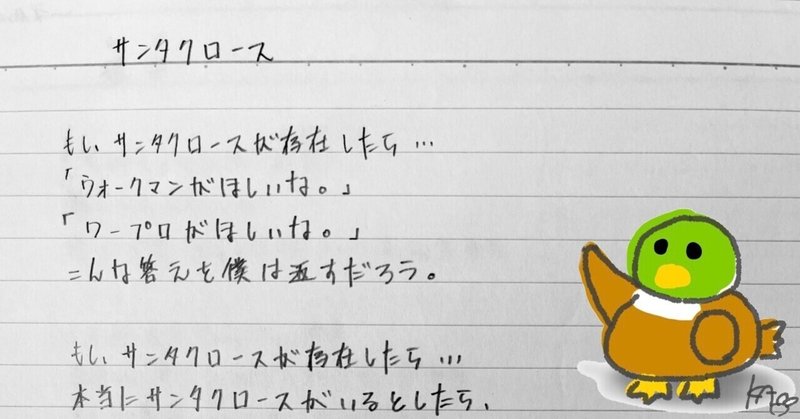 サンタクロース
もし サンタクロースが存在したら…
「ウォークマンがほしいな。」
「ワープロがほしいな。」
こんな答えを僕は返すだろう。
もし サンタクロースが存在したら…
本当にサンタクロースがいるとしたら、